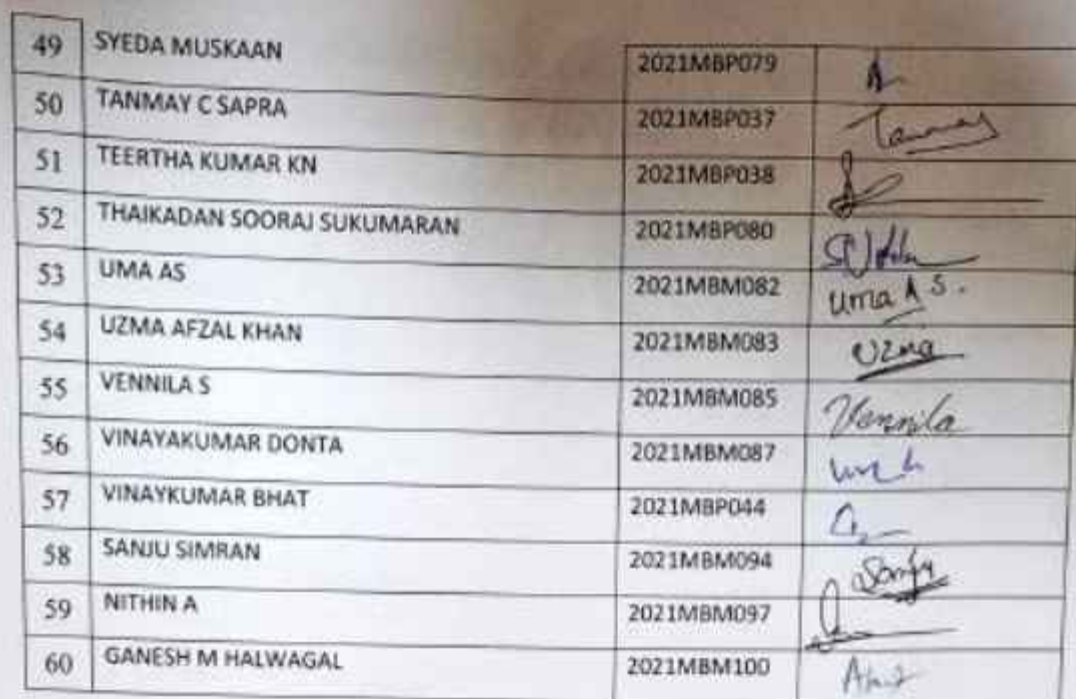 49 SYEDA MUSKAAN 2021MBP079
50 TANMAY C SAPRA 2021MBP037 Tanmay
51 TEERTHA KUMAR KN 2021MBP038
52 THAIKADAN SOORAJ SUKUMARAN 2021MBP080
53 UMA AS 2021MBM082 Uma A S.
54 UZMA AFZAL KHAN 2021MBM083 Uzma
55 VENNILA S 2021MBM085 Vennila
56 VINAYAKUMAR DONTA 2021MBM087
57 VINAYKUMAR BHAT 2021MBP044
58 SANJU SIMRAN 2021MBM094 Sanju
59 NITHIN A 2021MBM097
60 GANESH M HALWAGAL 2021MBM100